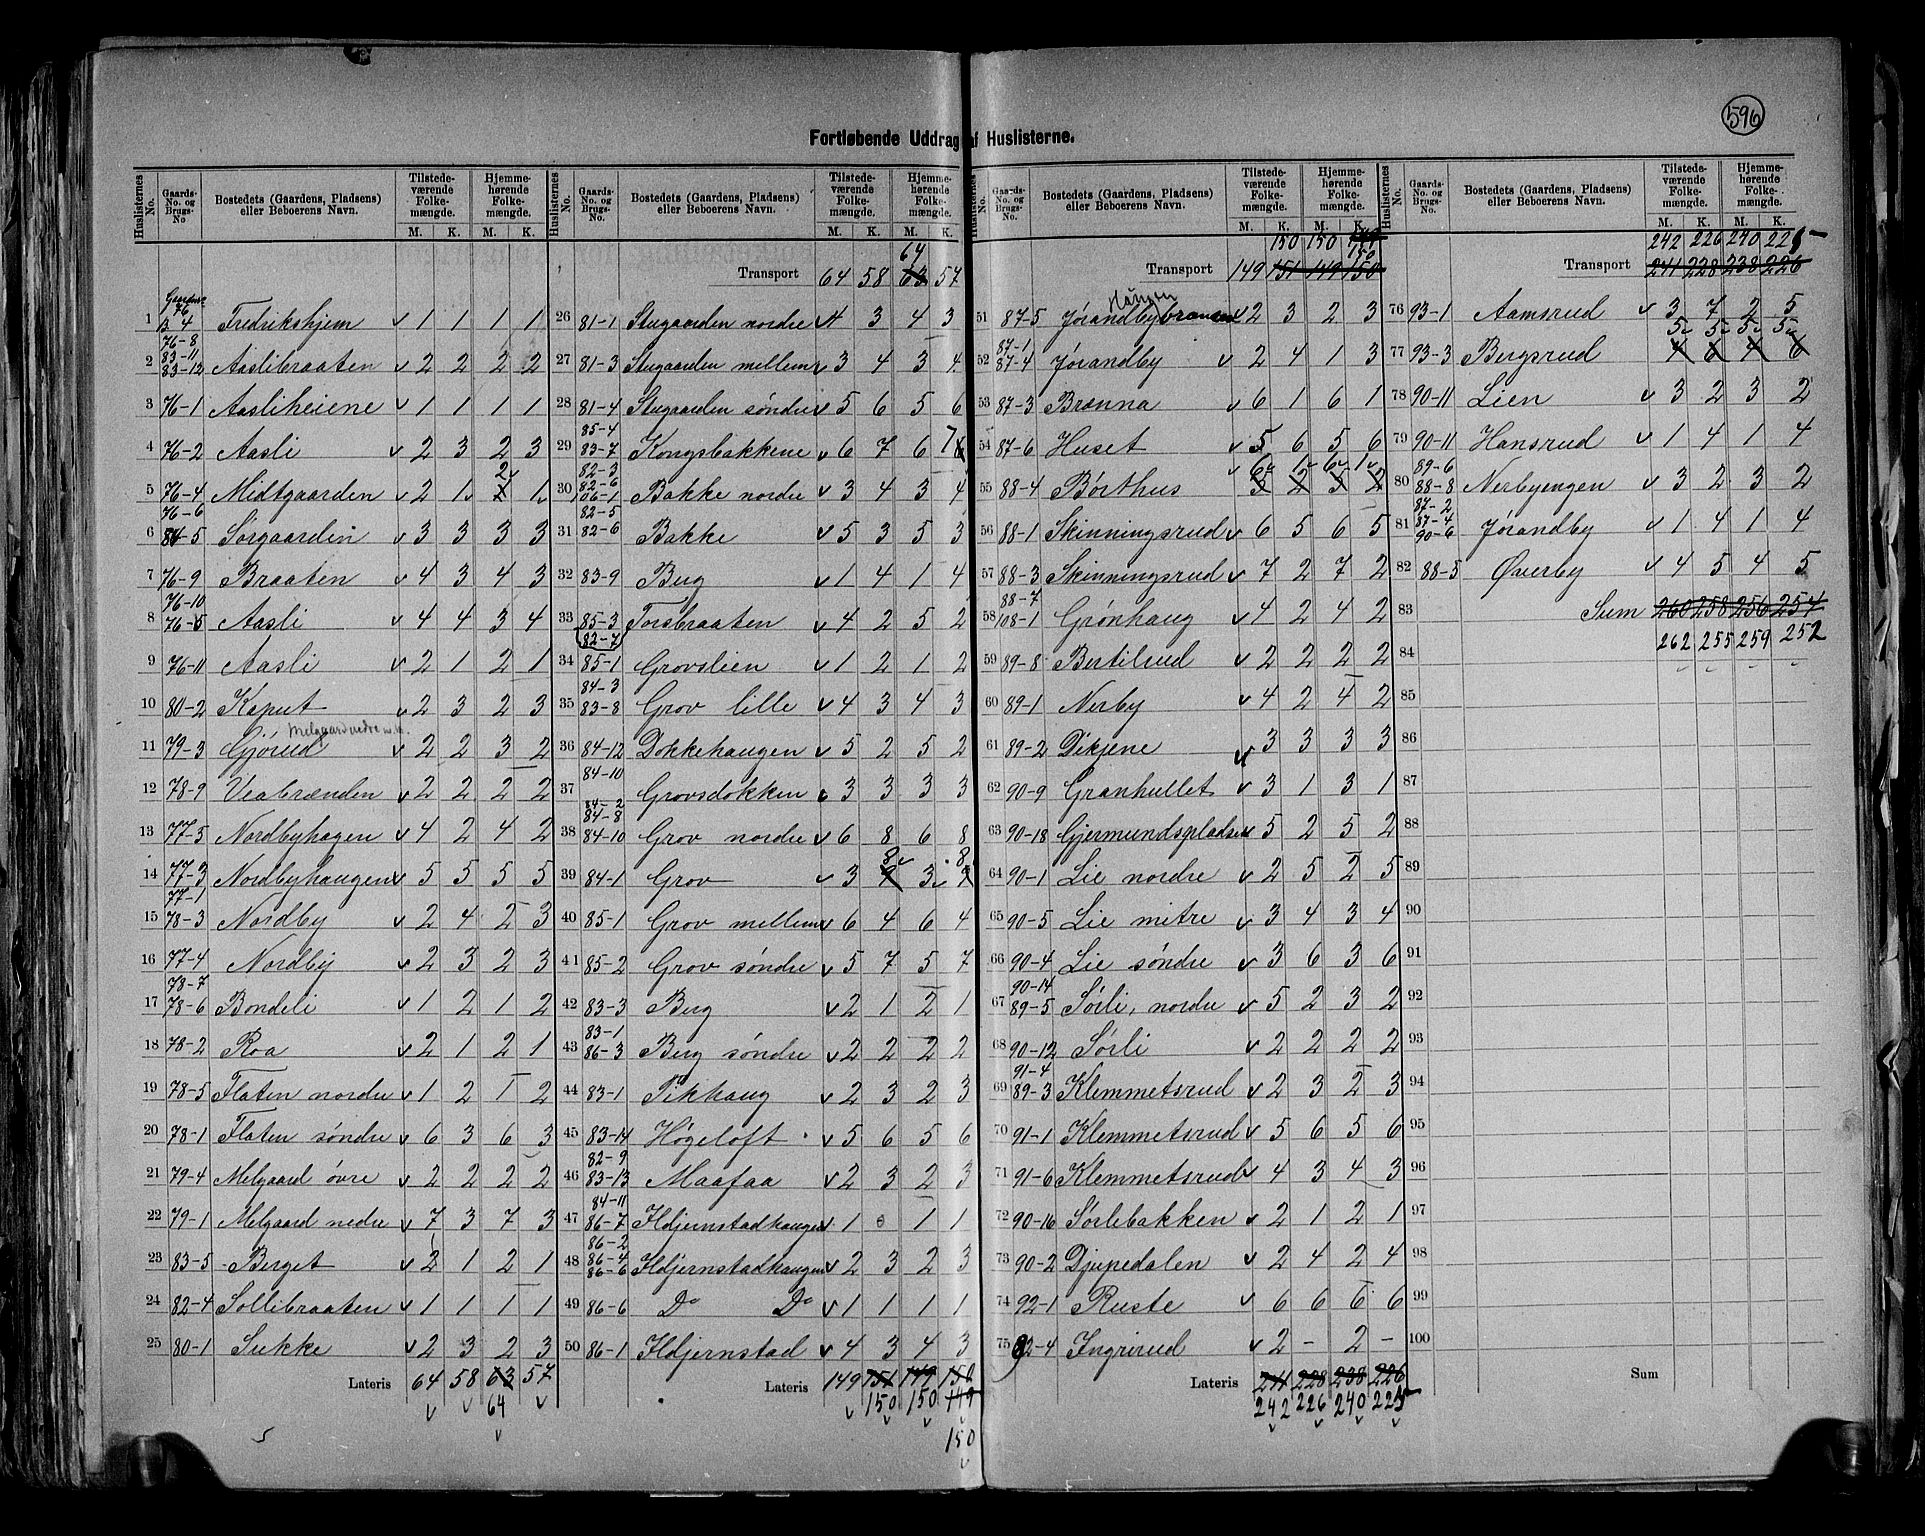 596
Fortløbende Uddrag af Huslisterne.
Huslisternes No. Gaards-No. og Brugs-No Bostedets (Gaardens, Pladsens) eller Beboerens Navn. Tilstedeværende Folkemængde. M. K. Hjemmehørende Folkemængde. M. K.
1 76 4 Fredrikshjem v 1 1 1 1
2 76-8 83-11 83-12 Aaslibraaten v 2 2 2 2
3 76-1 Aasliheiene v 1 1 1 1
4 76-2 Aasli v 2 3 2 3
5 76-4 Midtgaarden v 2 1 2 1
6 76-6 84-5 Sørgaarden v 3 3 3 3
7 76-9 Braaten v 4 3 4 3
8 76-10 76-5 Aasli v 4 4 3 4
9 76-11 Aasli v 2 1 2 1
10 80-2 Kaput v 2 3 2 3
11 79-3 Gjørud v 2 2 3 2
12 78-9 Veabrænden v 2 2 2 2
13 77-5 Nordbyhagen v 4 2 4 2
14 77-3 Nordbyhaugen v 5 5 5 5
15 77-1 78-3 Nordby v 2 4 2 3
16 77-4 Nordby v 2 3 2 3
17 78-7 78-6 Bondeli v 1 2 1 2
18 78-2 Roa v 2 1 2 1
19 78-5 Flaten nordre v 1 2 1 2
20 78-1 Flaten søndre v 6 3 6 3
21 79-4 Melgaard øvre v 2 2 2 2
22 79-1 Melgaard nedre v 7 3 7 3
23 83-5 Berget v 2 1 2 1
24 82-4 Sollibraaten v 1 1 1 1
25 80-1 Sukke v 2 3 2 3
Lateris 64 58 63 57
64
Huslisternes No. Gaards-No. og Brugs-No. Bostedets (Gaardens, Pladsens) eller Beboerens Navn. Tilstedeværende Folkemængde. M. K. Hjemmehørende Folkemængde. M. K.
64
Transport 64 58 63 57
26 81-1 Stugaarden nordre v 4 3 4 3
27 81-3 Stugaarden mellem v 3 4 3 4
28 81-4 Stugaarden søndre v 5 6 5 6
29 85-4 83-7 Kongsbakkene v 6 7 6 7
30 82-3 82-6 106-1 Bakke nordre v 3 4 3 4
31 82-5 82-6 Bakke v 5 3 5 3
32 83-9 Bug v 1 4 1 4
33 85-3 Forsbraaten v 4 2 5 2
34 82-7 85-1 Grovslien v 1 2 1 2
35 84-3 83-8 Grov lille v 4 3 4 3
36 84-12 Dokkehaugen v 5 2 5 2
37 84-10 Grovsdokken v 3 3 3 3
38 84-2 84-8 84-10 Grov nordre v 6 8 6 8
39 84-1 Grov v 3 8 3 8
40 85-1 Grov mellem v 6 4 6 4
41 85-2 Grov søndre v 5 7 5 7
42 83-3 Berg v 2 1 2 1
43 83-1 86-3 Berg søndre v 2 2 2 2
44 83-1 Pikhaug v 2 3 2 3
45 83-14 Høgeloft v 5 6 5 6
46 82-9 83-13 Maafaa v 2 3 2 3
47 84-11 86-7 Hdjernstadhaugen v 1 0 1 1
48 86-2 86-4 86-6 Hdjernstadhaugen v 2 3 2 3
49 86-6 Do Do v 1 1 1 1
50 86-1 Hdjernstad v 4 3 4 3
Lateris 149 151 149 150
150 150 149
150
Huslisternes No. Gaards-No. og Brugs-No. Bostedets (Gaardens, Pladsens) eller Beboerens Navn. Tilstedeværende Folkemængde. M. K. Hjemmehørende Folkemængde. M. K.
150 150 149
150
Transport 149 151 149 150
51 87-5 Jørandbybraaten v 2 3 2 3
52 87-1 87-4 Jørandby v 2 4 1 3
53 87-3 Brønna v 6 1 6 1
54 87-6 Huset v 5 6 5 6
55 88-4 Børthus v 6 1 6 1
3 2 3 2
56 88-1 Skinningsrud v 6 5 6 5
57 88-3 Skinningsrud v 7 2 7 2
58 88-7 108-1 Grønhaug v 4 2 4 2
59 89-8 Bertilrud v 2 2 2 2
60 89-1 Nerby v 4 2 4 2
61 89-2 Dikjene v 3 3 3 3
62 90-9 Granhullet v 3 1 3 1
63 90-18 Gjermundspladsen v 5 2 5 2
64 90-1 Lie nordre v 2 5 2 5
65 90-5 Lie mitre v 3 4 3 4
66 90-4 Lie søndre v 3 6 3 6
67 90-14 89-5 Sørli, nordre v 5 2 3 2
68 90-12 Sørli v 2 2 2 2
69 91-4 89-3 Klemmetsrud v 2 3 2 3
70 91-1 Klemmetsrud v 5 6 5 6
71 91-6 Klemmetsrud v 4 3 4 3
72 90-16 Sørlebakken v 2 1 2 1
73 90-2 Djupedalen v 2 4 2 4
74 92-1 Ruste v 6 6 6 6
75 92-4 Ingrirud v 2 - 2 -
Lateris 241 228 238 226
242 226 240 225
Huslisternes No. Gaards-No. og Brugs-No. Bostedets (Gaardens, Pladsens) eller Beboerens Navn. Tilstedeværende Folkemængde. M. K. Hjemmehørende Folkemængde. M. K.
242 226 240 225
Transport 241 228 238 226
76 93-1 Aamsrud v 3 7 2 5
5 5 5 5
77 93-3 Bergsrud v 4 6 4 6
78 90-11 Lien v 3 2 3 2
79 90-11 Hansrud v 1 4 1 4
80 89-6 88-8 Nerbyengen v 3 2 3 2
81 87-2 87-4 90-6 Jørandby v 1 4 1 4
82 88-5 Øverby v 4 5 4 5
83 Sum 260 258 256 254
84 262 255 259 252
85
86
87
88
89
90
91
92
93
94
95
96
97
98
99
100
Sum